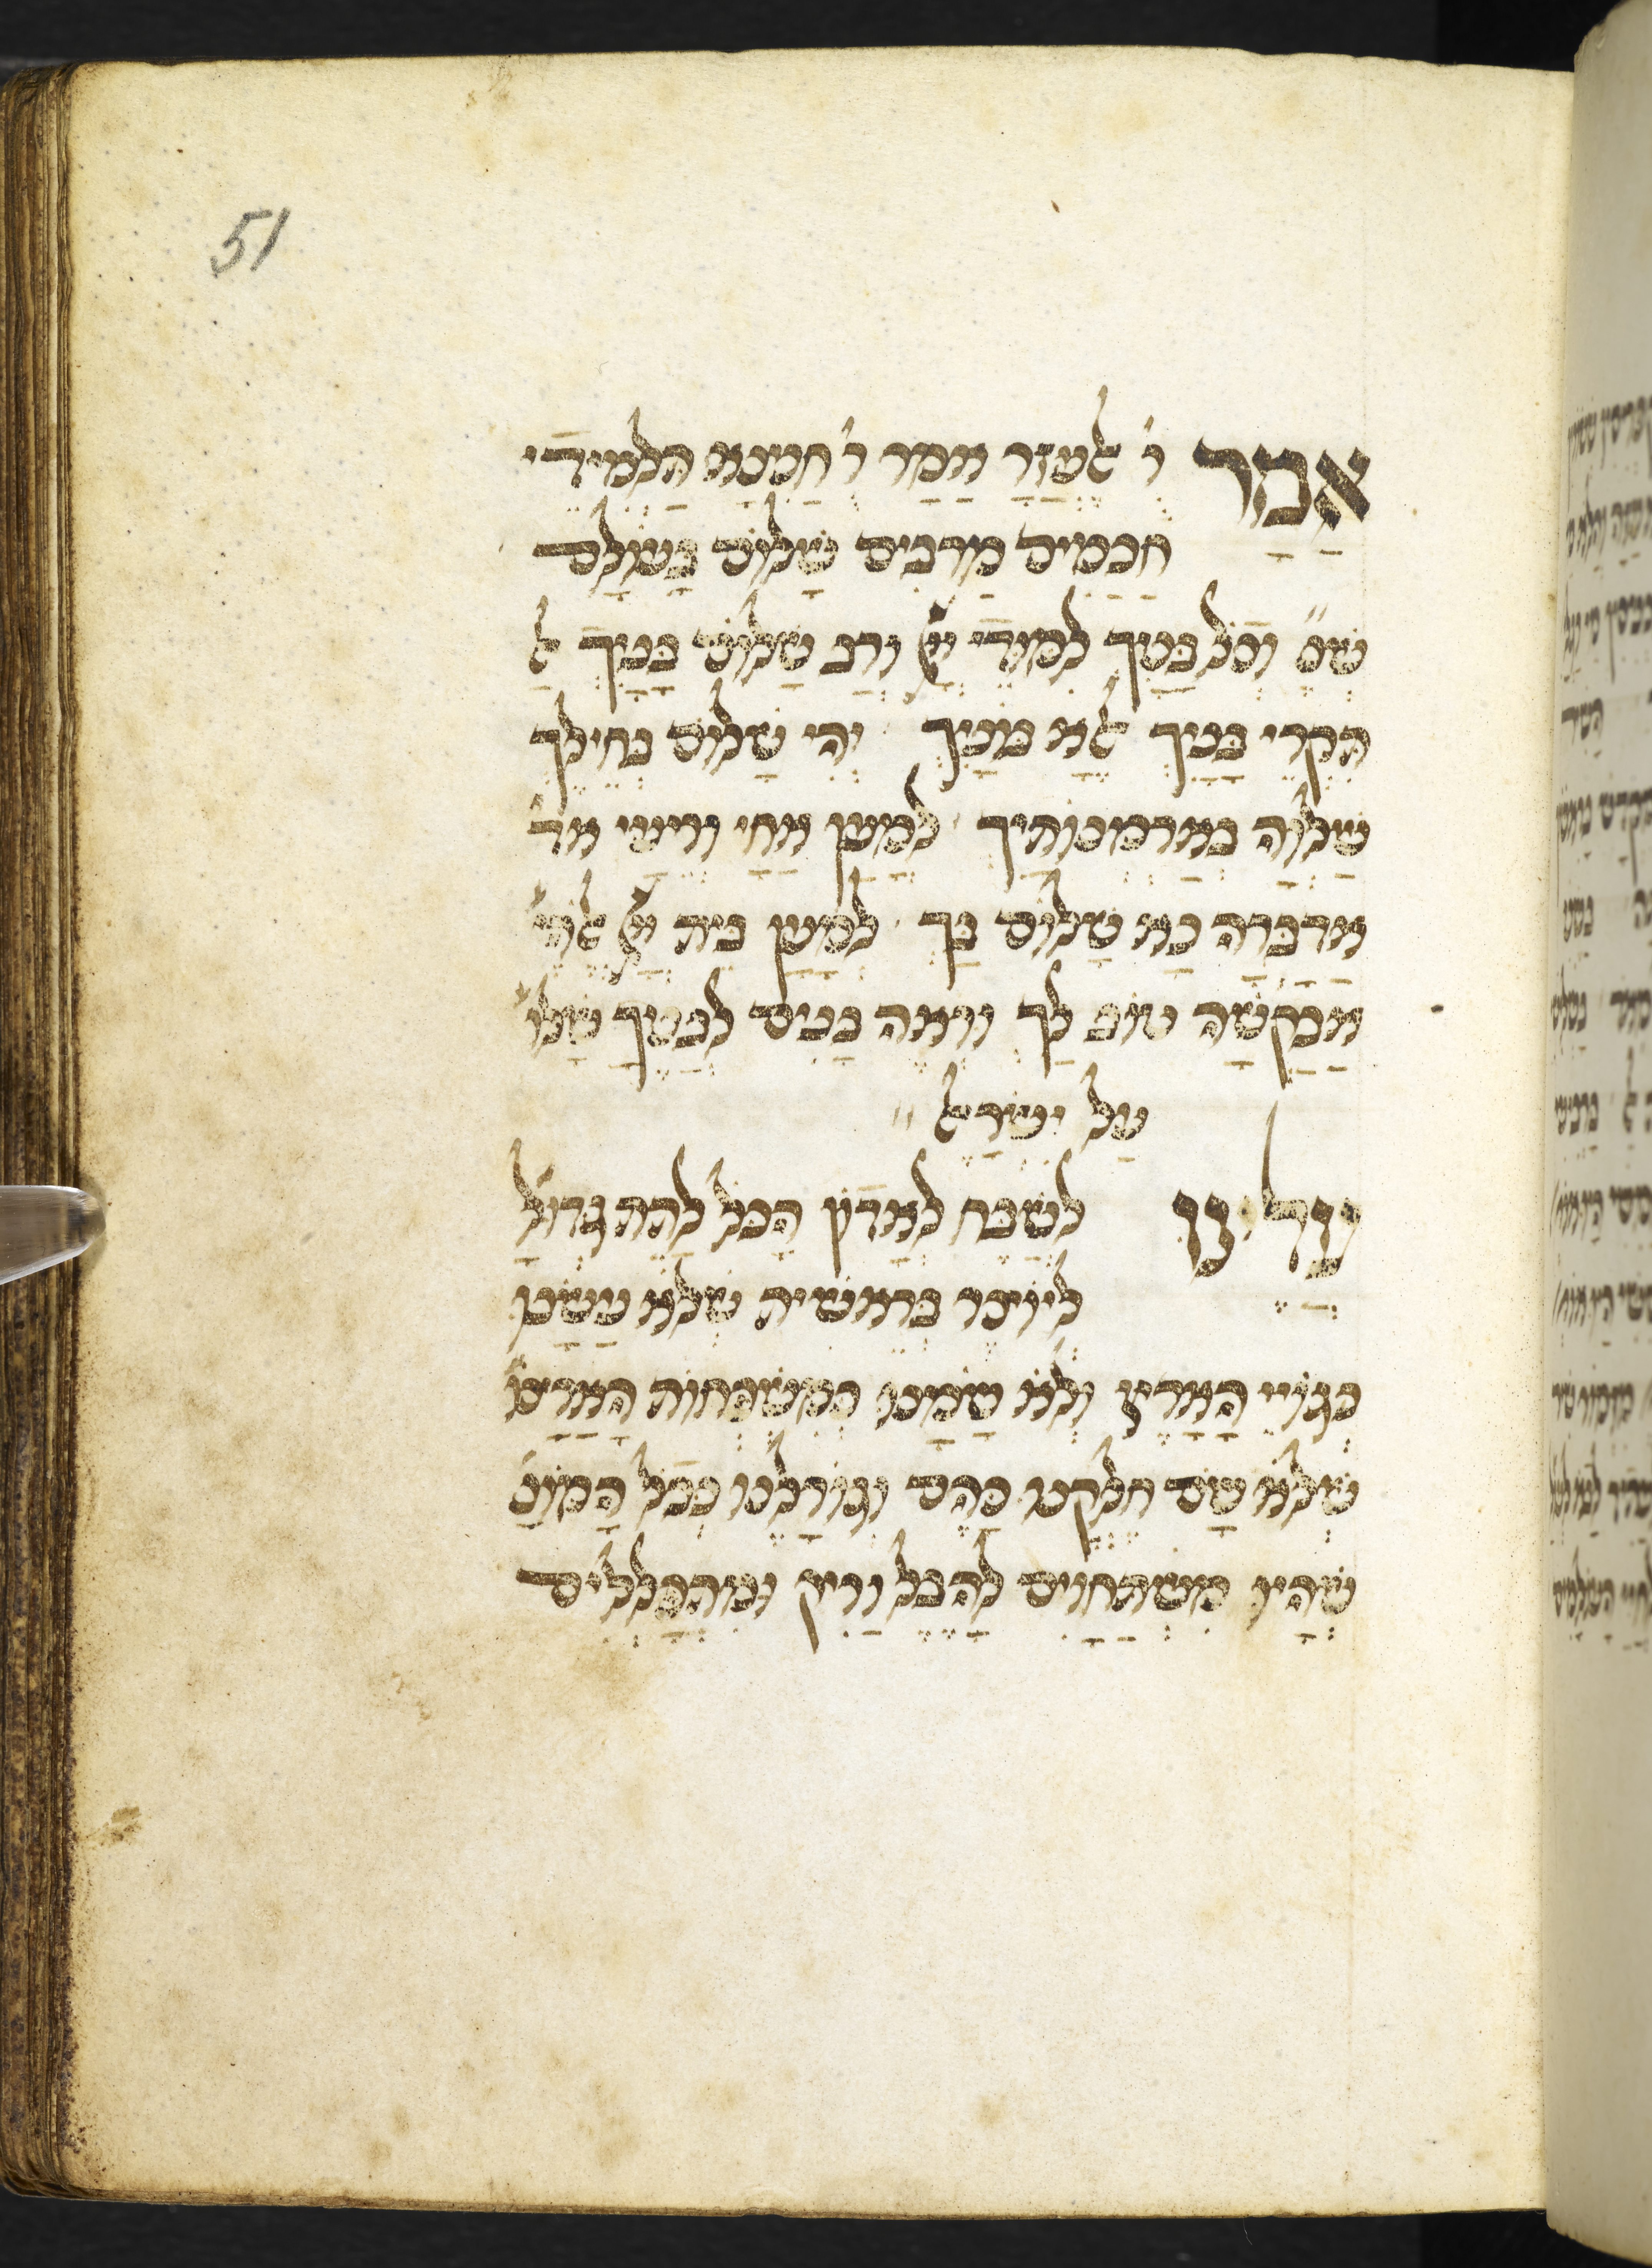 51
אמר ר׳ אלעזר אמר ר׳ חננא תלמידי
חכמים מרבים שלום בעולם
שנ״ וכל בניך למודי ײ ורב שלום בניך אל
תקרי בניך אלא בוניך יהי שלום בחילך
שלוה בארמנותיך למען אחי ורעי אד׳
אדברה נא שלום בך למען בית ײ אלהי׳
אבקשה טוב לך וראה בנים לבניך שלו׳
על ישראל
עלינו לשבח לאדון הכל לתת גדולה
ליוצר בראשית שלא עשנו
כגויי הארץ ולא שמנו כמשפחות האדמ׳
שלא שם חלקנו כהם וגורלנו ככל המונם
שהין משתחוים להבל וריק ומתפללים